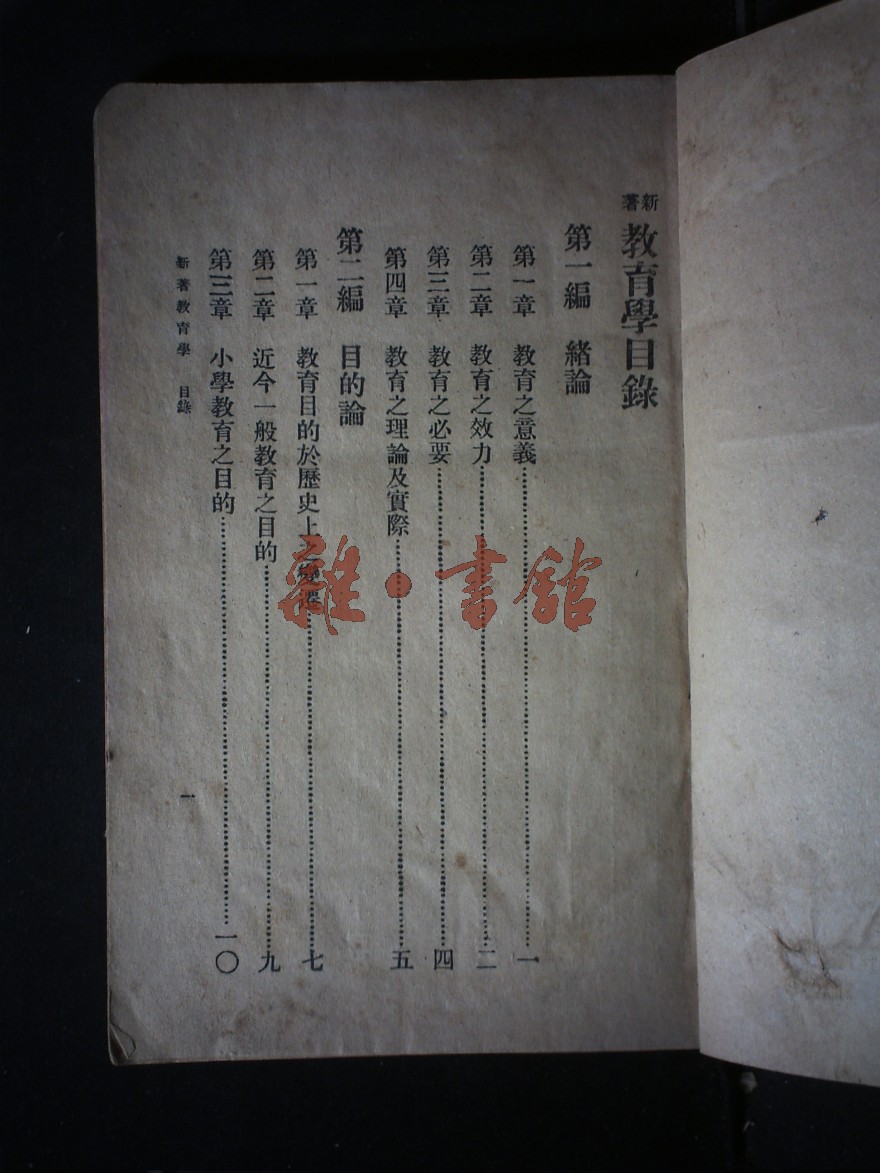 新著教育學目錄
第一編 緒論
第一章 教育之意義……一
第二章 教育之效力……二
第三章 教育之必要……四
第四章 教育之理論及實際……五
第二編 目的論
第一章 教育目的於歷史上之變遷……七
第二章 近今一般教育之目的……九
第三章 小學教育之目的……一〇
新著教育學 目錄 一
雜·書館